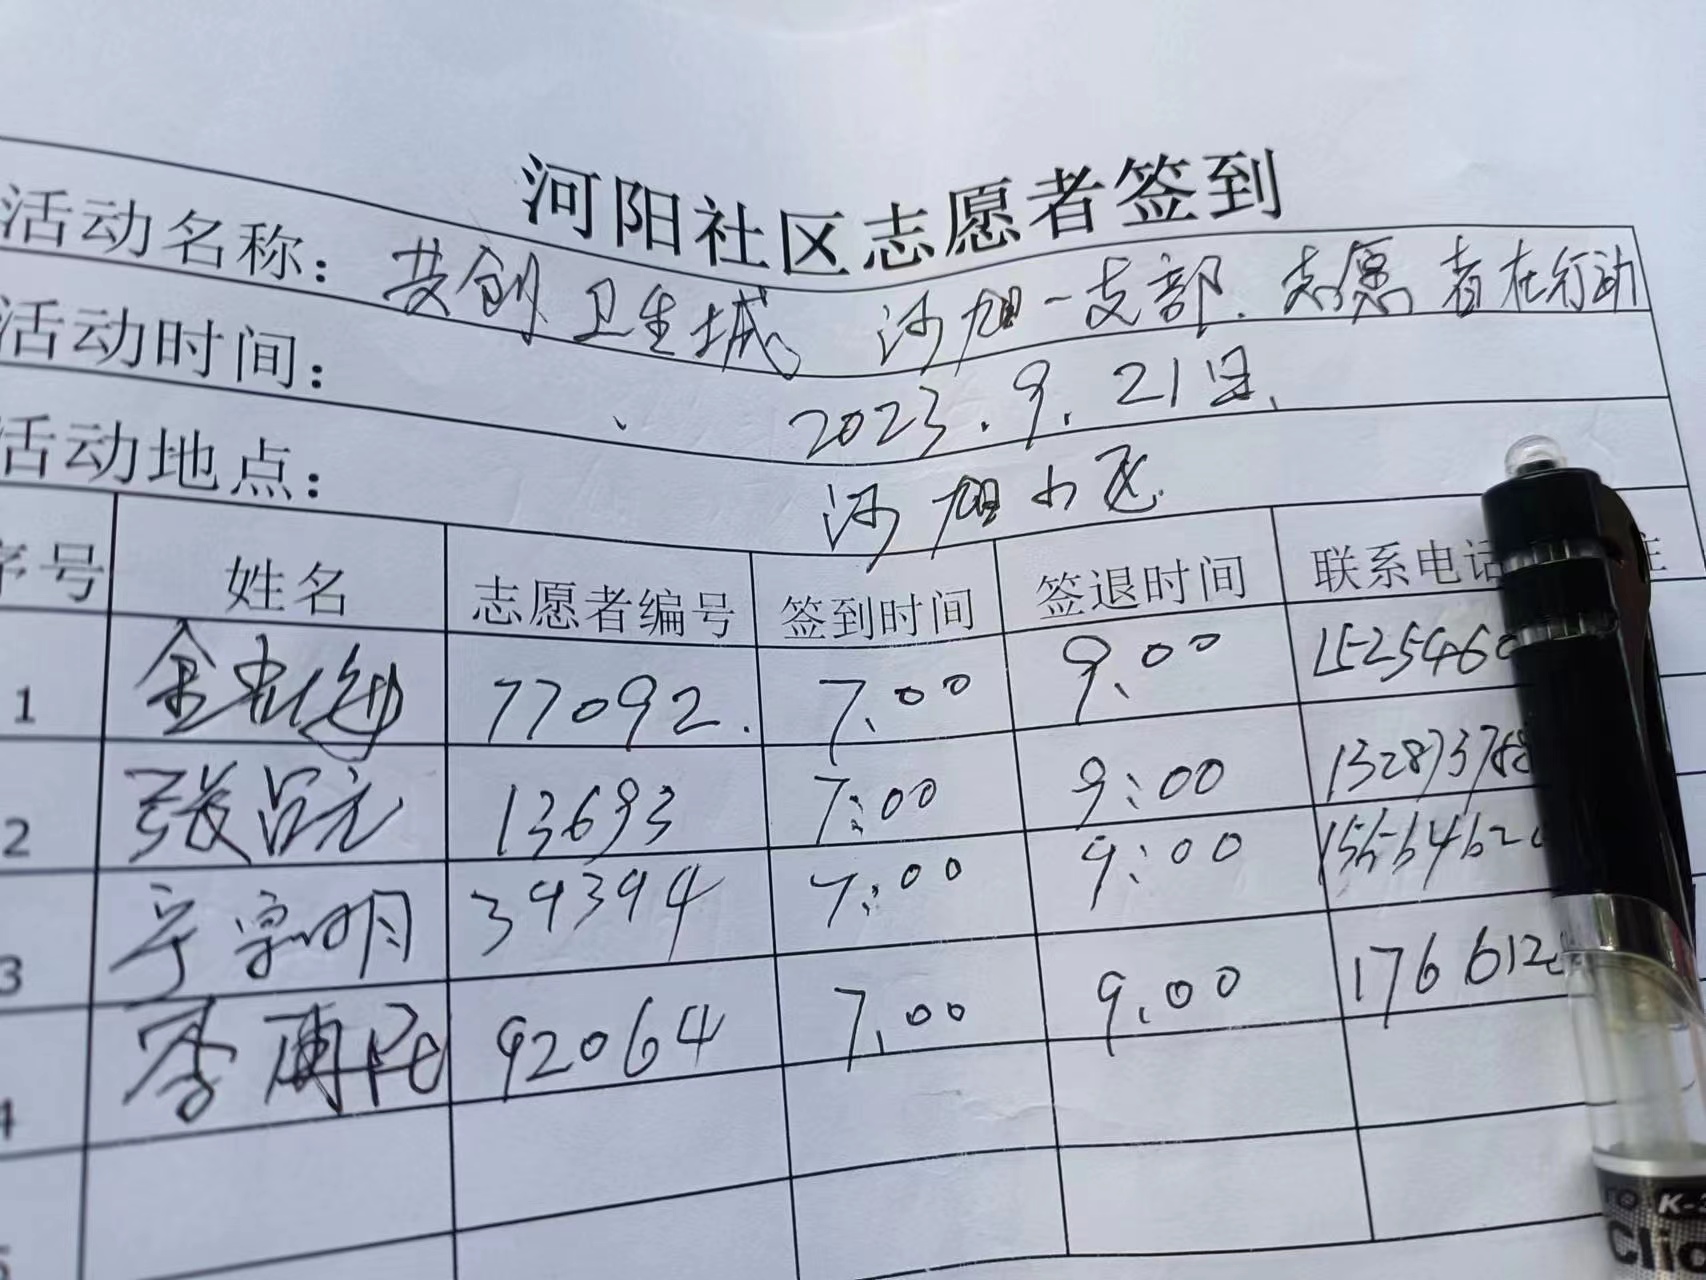 河阳社区志愿者签到
活动名称：共创卫生城 沙旭一支部.志愿者在行动
活动时间： 2023.9.21日
活动地点： 沙旭小区
序号 姓名 志愿者编号 签到时间 签退时间 联系电话 注
1 金 77092. 7.00 9.00 1525460
2 张吕元 13693 7:00 9:00 132873768
3 宁宗明 39394 7:00 9:00 1556462
4 李再 92064 7.00 9.00 176612
5
K-3
Clic